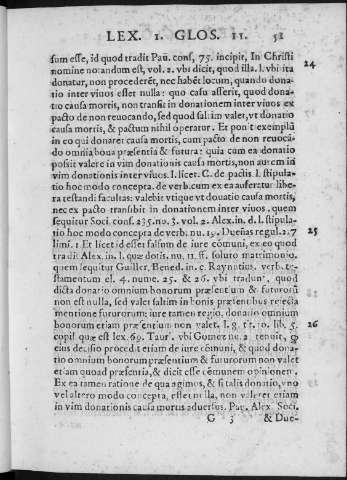 LEX. 1. GLOS. 11. 51
sum esse, id quod tradit Pau. cons. 75. incipit, In Christi
nomine notandum est, vol. 2. vbi dicit, quod illa. l. vbi ita
24
donatur, non procederēt, nec habēt locum, quando dona-
tio inter viuos esset nulla: quo casu asserit, quod dona-
tio causa mortis, non transit in donationem inter viuos ex
pacto de non reuocando, sed quod saltim valet, vt donatio
causa mortis, & pactum nihil operatur. Et ponit exemplū
in eo qui donaret causa mortis, cum pacto de non reuocā-
do omnia bona præsentia & futura: quia cum ea donatio
possit valere in vim donationis causa mortis, non autem in
vim donationis inter viuos. l. licet. C. de pactis l. stipula-
tio hoc modo concepta. de verb. cum ex ea auferatur libe-
ra testandi facultas: valebit vtique vt donatio causa mortis,
nec ex pacto transibit in donationem inter viuos, quem
sequitur Soci. cons. 235. no. 3. vol. 2. Alex. in. d. l. stipula-
tio hoc modo concepta de verb. nu. 15. Dueñas regul. 2.7
25
limi. 1 Et licet id esset falsum de iure cōmuni, ex eo quod
tradit Alex. in. l. quæ dotis. nu. 11. ff. soluto matrimonio.
quem sequitur Guiller. Bened. in c. Raynutius. verb. te-
stamentum el. 4. nume. 25. & 26. vbi tradunt, quod
dicta donatio omnium bonorum præsentium & futurorū
non est nulla, sed valet saltim in bonis præsentibus reiecta
mentione futurorum: iure tamen regio, donatio omnium
bonorum etiam præsentium non valet. l. 9. tit. 10. lib. 5.
26
copil. quæ est lex. 69. Taur. vbi Gomez nu. 2 tenuit, q̄
eius decisio procedit etiam de iure cōmuni, & quod dona-
tio omnium bonorum præsentium & futurorum non valet
etiam quoad præsentia, & dicit esse cōmunem opinionem.
Ex ea tamen ratione de qua agimus, & si talis donatio, vno
vel altero modo concepta, esset nulla, non valeret etiam
in vim donationis causa mortis aduersus. Pau. Alex. Soci.
G 3 & Due-